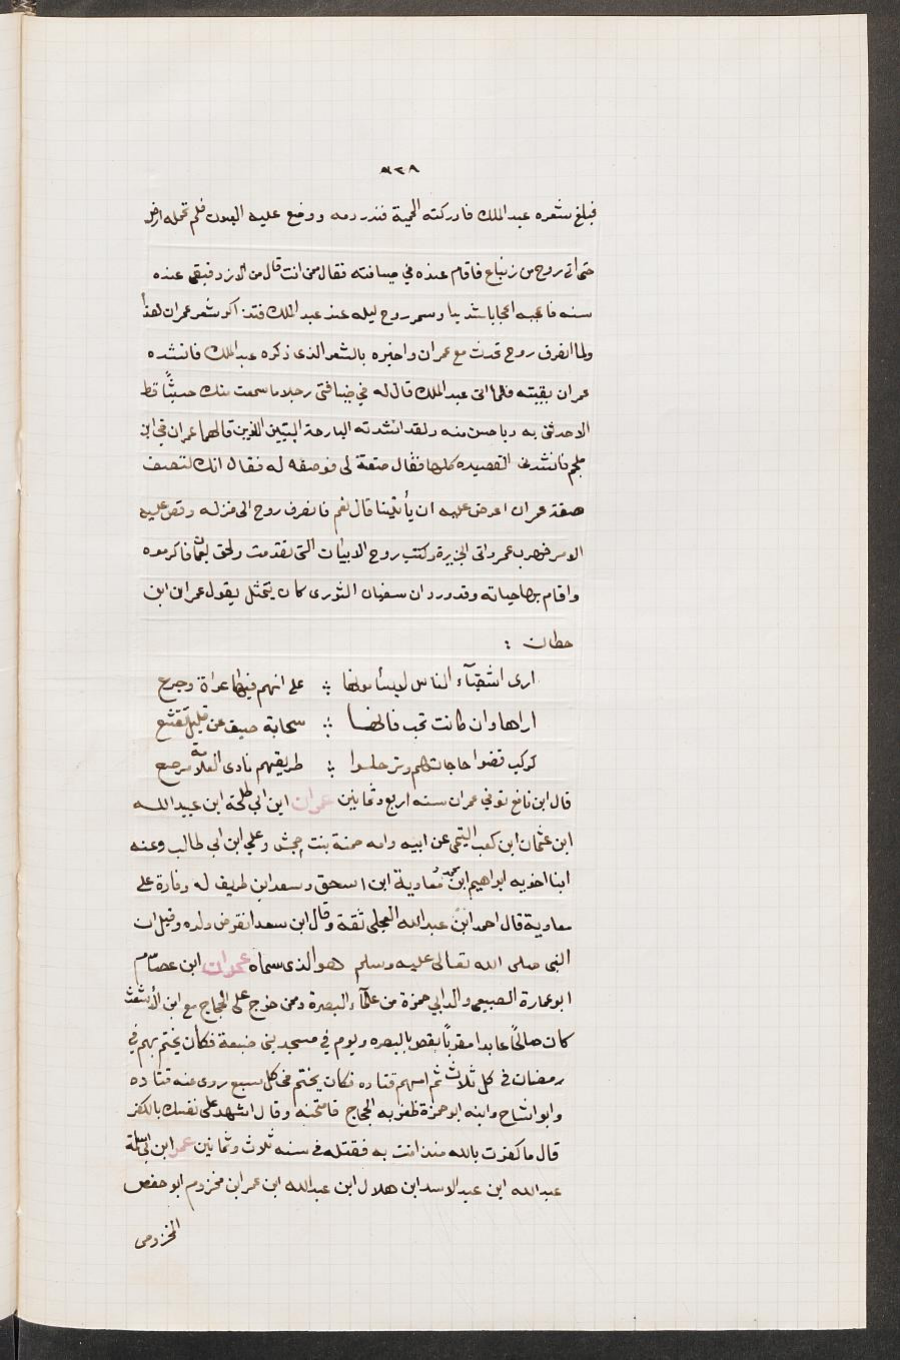 فبلغ شعره عبد الملك فادركته الحمية فنذر دمه ووضع عليه العيون فلم تحمله ارض
حتى اتى روح بن زنباع فاقام عنده في ضيافته فقال ممن انت قال من الازد فبقى عنده
سنه فاعجبه اعجابا شديدا وسمر روح ليله عند عبد الملك فتذاكر شعر عمران هذا
ولما انصرف روح تحدث مع عمران واخبره بالشعر الذى ذكره عبد الملك فانشده
عمران بقيته فلما اتى عبد الملك قال له في ضيافتى رجلا ما سمعت منك حديثًا قط
الا حدثنى به وباحسن منه ولقد انشدته البارحة البيتين اللذين قالهما عمران في ابن
ملجم فانشدنى القصيده كلها فقال صفة لى فوصفه له فقال انك لتصف
صفة عمران اعرض عليه ان يأتينا قال نعم فانصرف روح الى منزله وقص عليه
الامر فهرب عمر واتى الجزيرة وكتب روح الابيات التى تقدمت ولحق بعمان فاكرموه
واقام بها حياته وقد ورد ان سفيان الثورى كان يتمثل بقول عمران ابن
حطان :
ارى اشقيآء الناس لا يسأمونها ؞ على انهم فيها عراة وجوع
اراها وان كانت تحب فانها ؞ سحابة صيف عن قليل تقشع
كركب قضوا حاجاتهم وترحلوا ؞ طريقهم بادى العلامة مرجع
قال ابن نافع توفي عمران سنه اربع وثمانين عمران ابن ابي طلحة ابن عبيد الله
ابن عثمان ابن كعب التيمى عن ابيه وامه حمنة بنت جحش وعلي ابن ابي طالب وعنه
ابنا اخويه ابراهيم ابن محمد ومعاوية ابن اسحق وسعد ابن طريف له وفادة على
معاوية قال احمد ابن عبد الله العجلى ثقة وقال ابن سعد انقرض ولده وقيل ان
النبى صلى الله تعالى عليه وسلم هو الذى سماه عمران ابن عصام
ابو عمارة الضبيعى والد ابي حمزة من علمآء البصرة وممن خرج على الحجاج مع ابن الأشعث
كان صالحًا عابدا مقريًا يقص بالبصره ويوم في مسجد بنى ضبيعة فكان يختم بهم في
رمضان في كل ثلاث ثم امهم قتاده فكان يختم في كل سبع روى عنه قتاده
وابو التياح وابنه ابو حمزة ظفر به الحجاج فامتحنه وقال اشهد على نفسك بالكفر
قال ما كفرت بالله منذ امنت به فقتله في سنه ثلاث وثمانين عمر ابن ابي سلمة
عبد الله ابن عبد الاسد ابن هلال ابن عبد الله ابن عمر ابن مخزوم ابو حفص
المخزومى